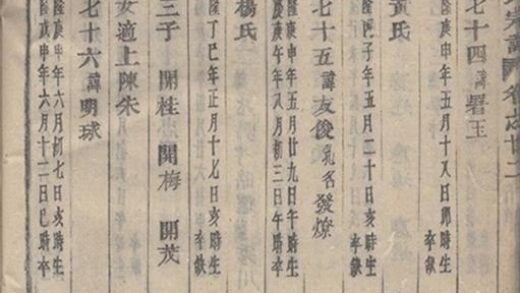 宋譜圖卷之廿二
七十四諱署玉
隆庚申年五月十又日卯時生
卒缺
黃氏
隆丙子年五月二十日亥時生
卒缺
七十五諱友俊乳名發燎
隆庚申年五月廿九日午時生
慶庚午年八月初三日午時卒
楊氏
隆丁巳年正月十七日亥時生
卒缺
三子 開桂 開梅 開茂
女適上陳朱
七十六諱明球
隆庚申年六月初七日亥時生
隆庚戌年六月十二日巳時卒